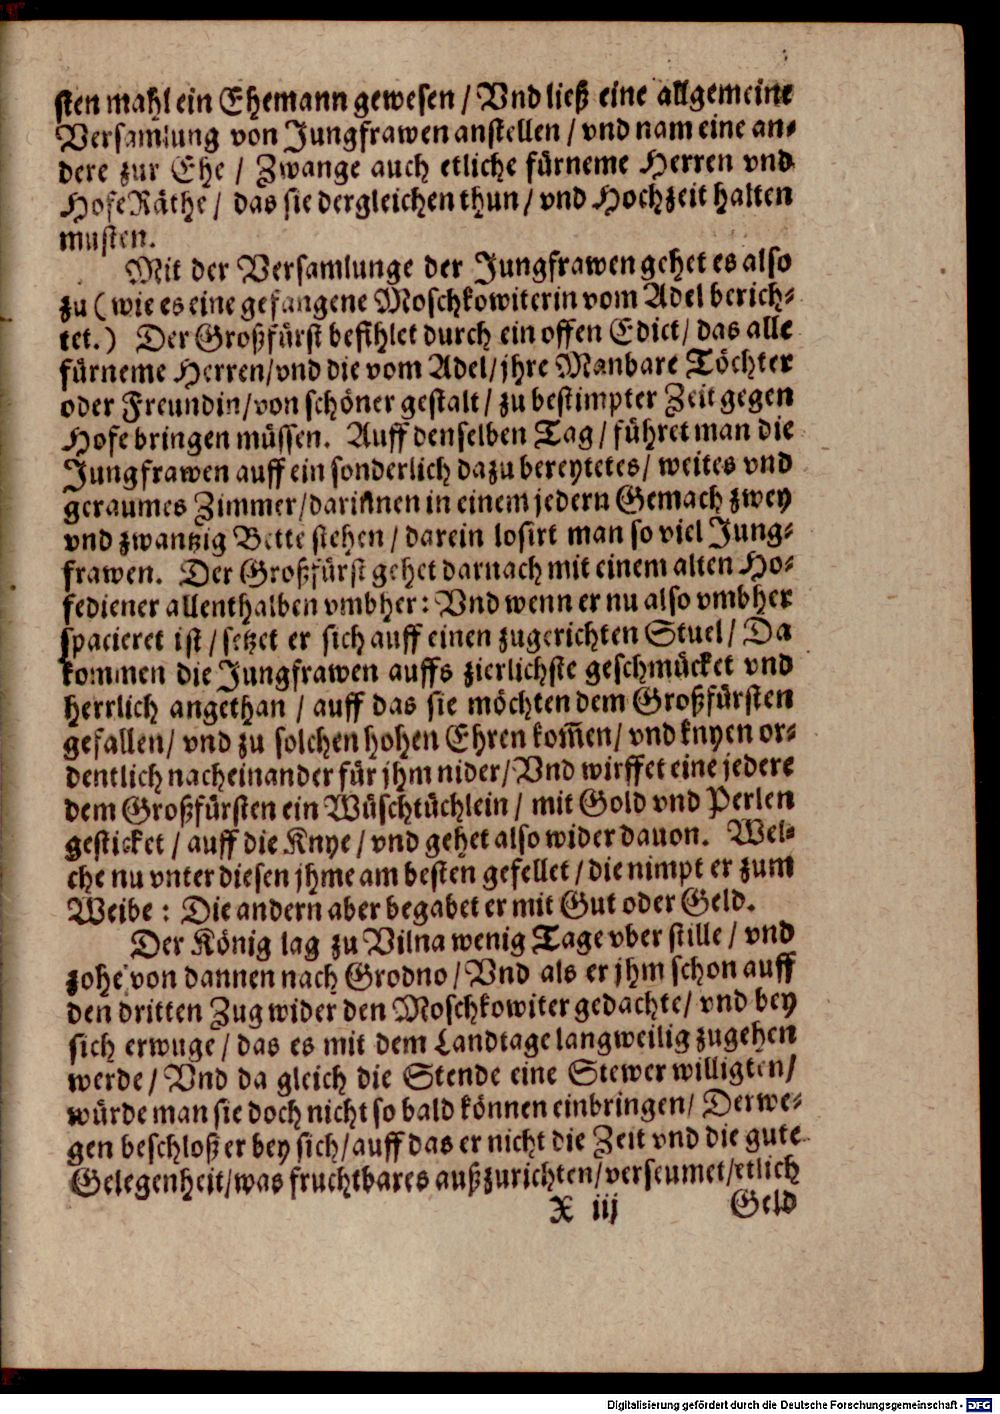 sten mahl ein Ehemann gewesen / Vnd ließ eine allgemeine
Versamlung von Jungfrawen anstellen / vnd nam eine an-
dere zur Ehe / Zwange auch etliche fürneme Herren vnd
HofeRäthe / das sie dergleichen thun / vnd Hochzeit halten
musten.
Mit der Versamlunge der Jungfrawen gehet es also
zu ( wie es eine gefangene Moschkowiterin vom Adel berich-
tet.) Der Großfürst befihlet durch ein offen Edict / das alle
fürneme Herren / vnd die vom Adel / jhre Manbare Töchter
oder Freundin / von schöner gestalt / zu bestimpter Zeit gegen
Hofe bringen müssen. Auff denselben Tag / führet man die
Jungfrawen auff ein sonderlich dazu bereytetes / weites vnd
geraumes Zimmer / darinnen in einem jedern Gemach zwey
vnd zwantzig Bette stehen / darein losirt man so viel Jung-
frawen. Der Großfürst gehet darnach mit einem alten Ho-
fediener allenthalben vmbher : Vnd wenn er nu also vmbher
spacieret ist / setzet er sich auff einen zugerichten Stuel / Da
kommen die Jungfrawen auffs zierlichste geschmücket vnd
herrlich angethan / auff das sie möchten dem Großfürsten
gefallen / vnd zu solchen hohen Ehren kom̃en / vnd knyen or-
dentlich nacheinander für jhm nider / Vnd wirffet eine jedere
dem Großfürsten ein Wüschtüchlein / mit Gold vnd Perlen
gesticket / auff die Knye / vnd gehet also wider dauon. Wel-
che nu vnter diesen jhme am besten gefellet / die nimpt er zum
Weibe : Die andern aber begabet er mit Gut oder Geld.
Der König lag zu Vilna wenig Tage vber stille / vnd
zohe von dannen nach Grodno / Vnd als er jhm schon auff
den dritten Zug wider den Moschkowiter gedachte / vnd bey
sich erwuge / das es mit dem Landtage langweilig zugehen
werde / Vnd da gleich die Stende eine Stewer willigten /
würde man sie doch nicht so bald können einbringen / Derwe-
gen beschloß er bey sich / auff das er nicht die Zeit vnd die gute
Gelegenheit / was fruchtbares außzurichten / verseumet / etlich
X iij Geld
Digitalisierung gefördert durch die Deutsche Forschungsgemeinschaft - DFG